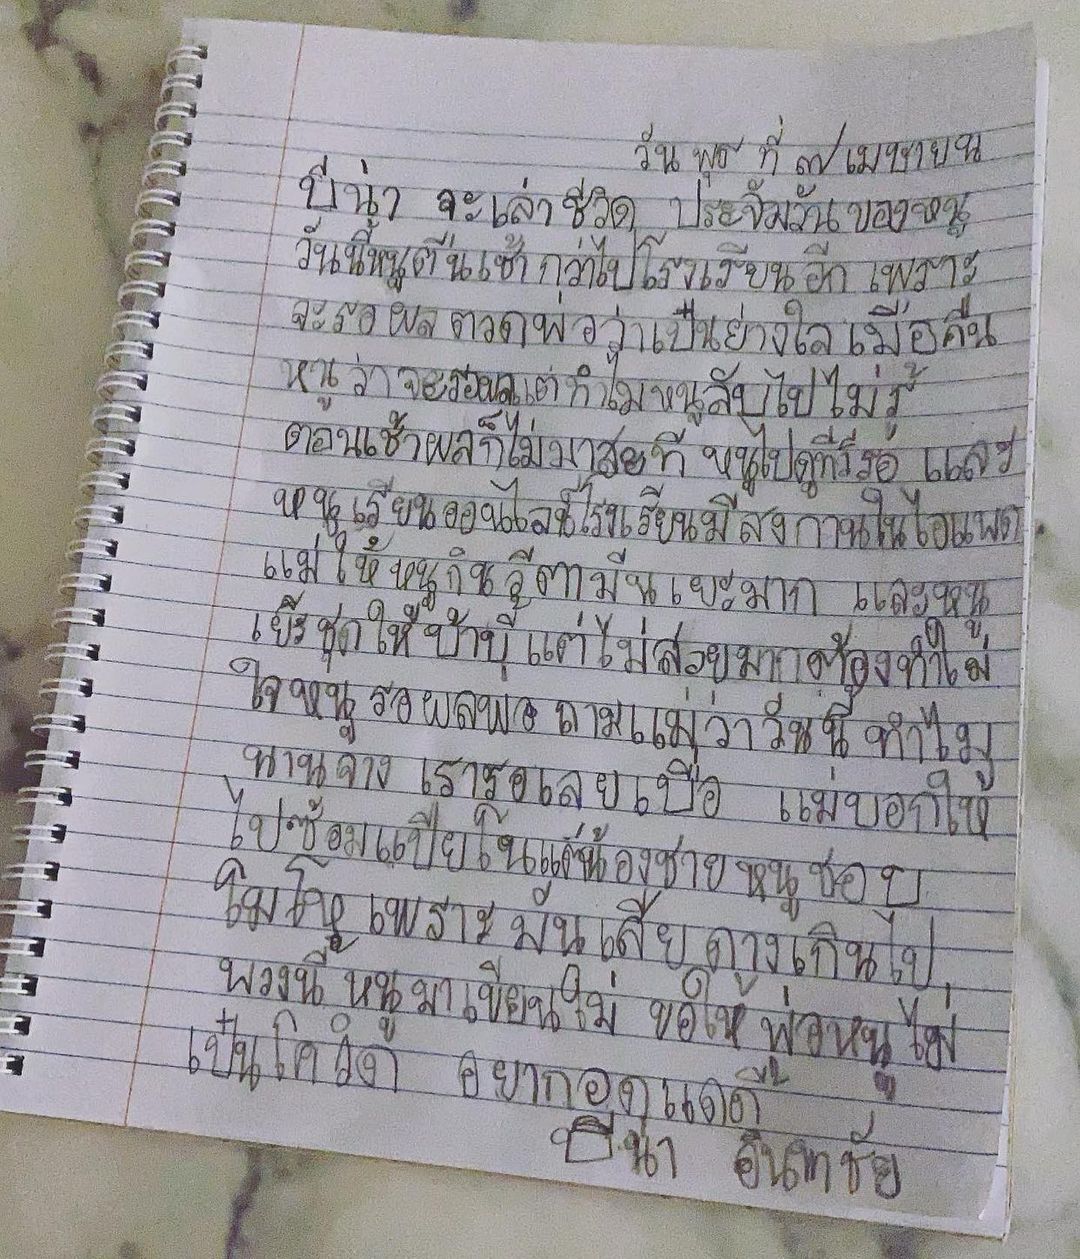 วัน พุธ ที่ ๗ เมษายน
บีน่า จะเล่า ชีวิด ประจัมวัน ของหนู
วันนี้หนูตื่นเช้า กว่าไปโรงเรียน อีก เพราะ
จะรอ ผล ตวดพ่อว่าเป็นย่างใล เมื่อคืน
หนู ว่า จะรอผลแต่ทำไมหนูลับไปไม่รู้
ตอนเช้าผลก็ไม่มาสะที หนูไปดูทีวีรอ และ
หนูเรียนออนไลน์โรงเรียนมีสงกานในไอแพด
แม่ให้หนูกินวีตามีนเยะมาก และหนู
เย็บชุดให้บ้าบี้ แต่ไม่สวยมากต้องทำใม่
ใจหนู รอผลพอ ถามแม่ว่า วันนี้ ทำไม
นานจาง เรารอเลยเบื่อ แม่บอกให้
ไปซ้อมเปียโนแต่น้องชาย หนูชอบ
โมโห เพราะ มันเสียดางเกินไป
พวงนี้ หนูมาเขียนใม่ ขอให้ พ่อหนูไม่
เป็นโควิด อยากอดแดดดี้
บีน่า อินทชัย